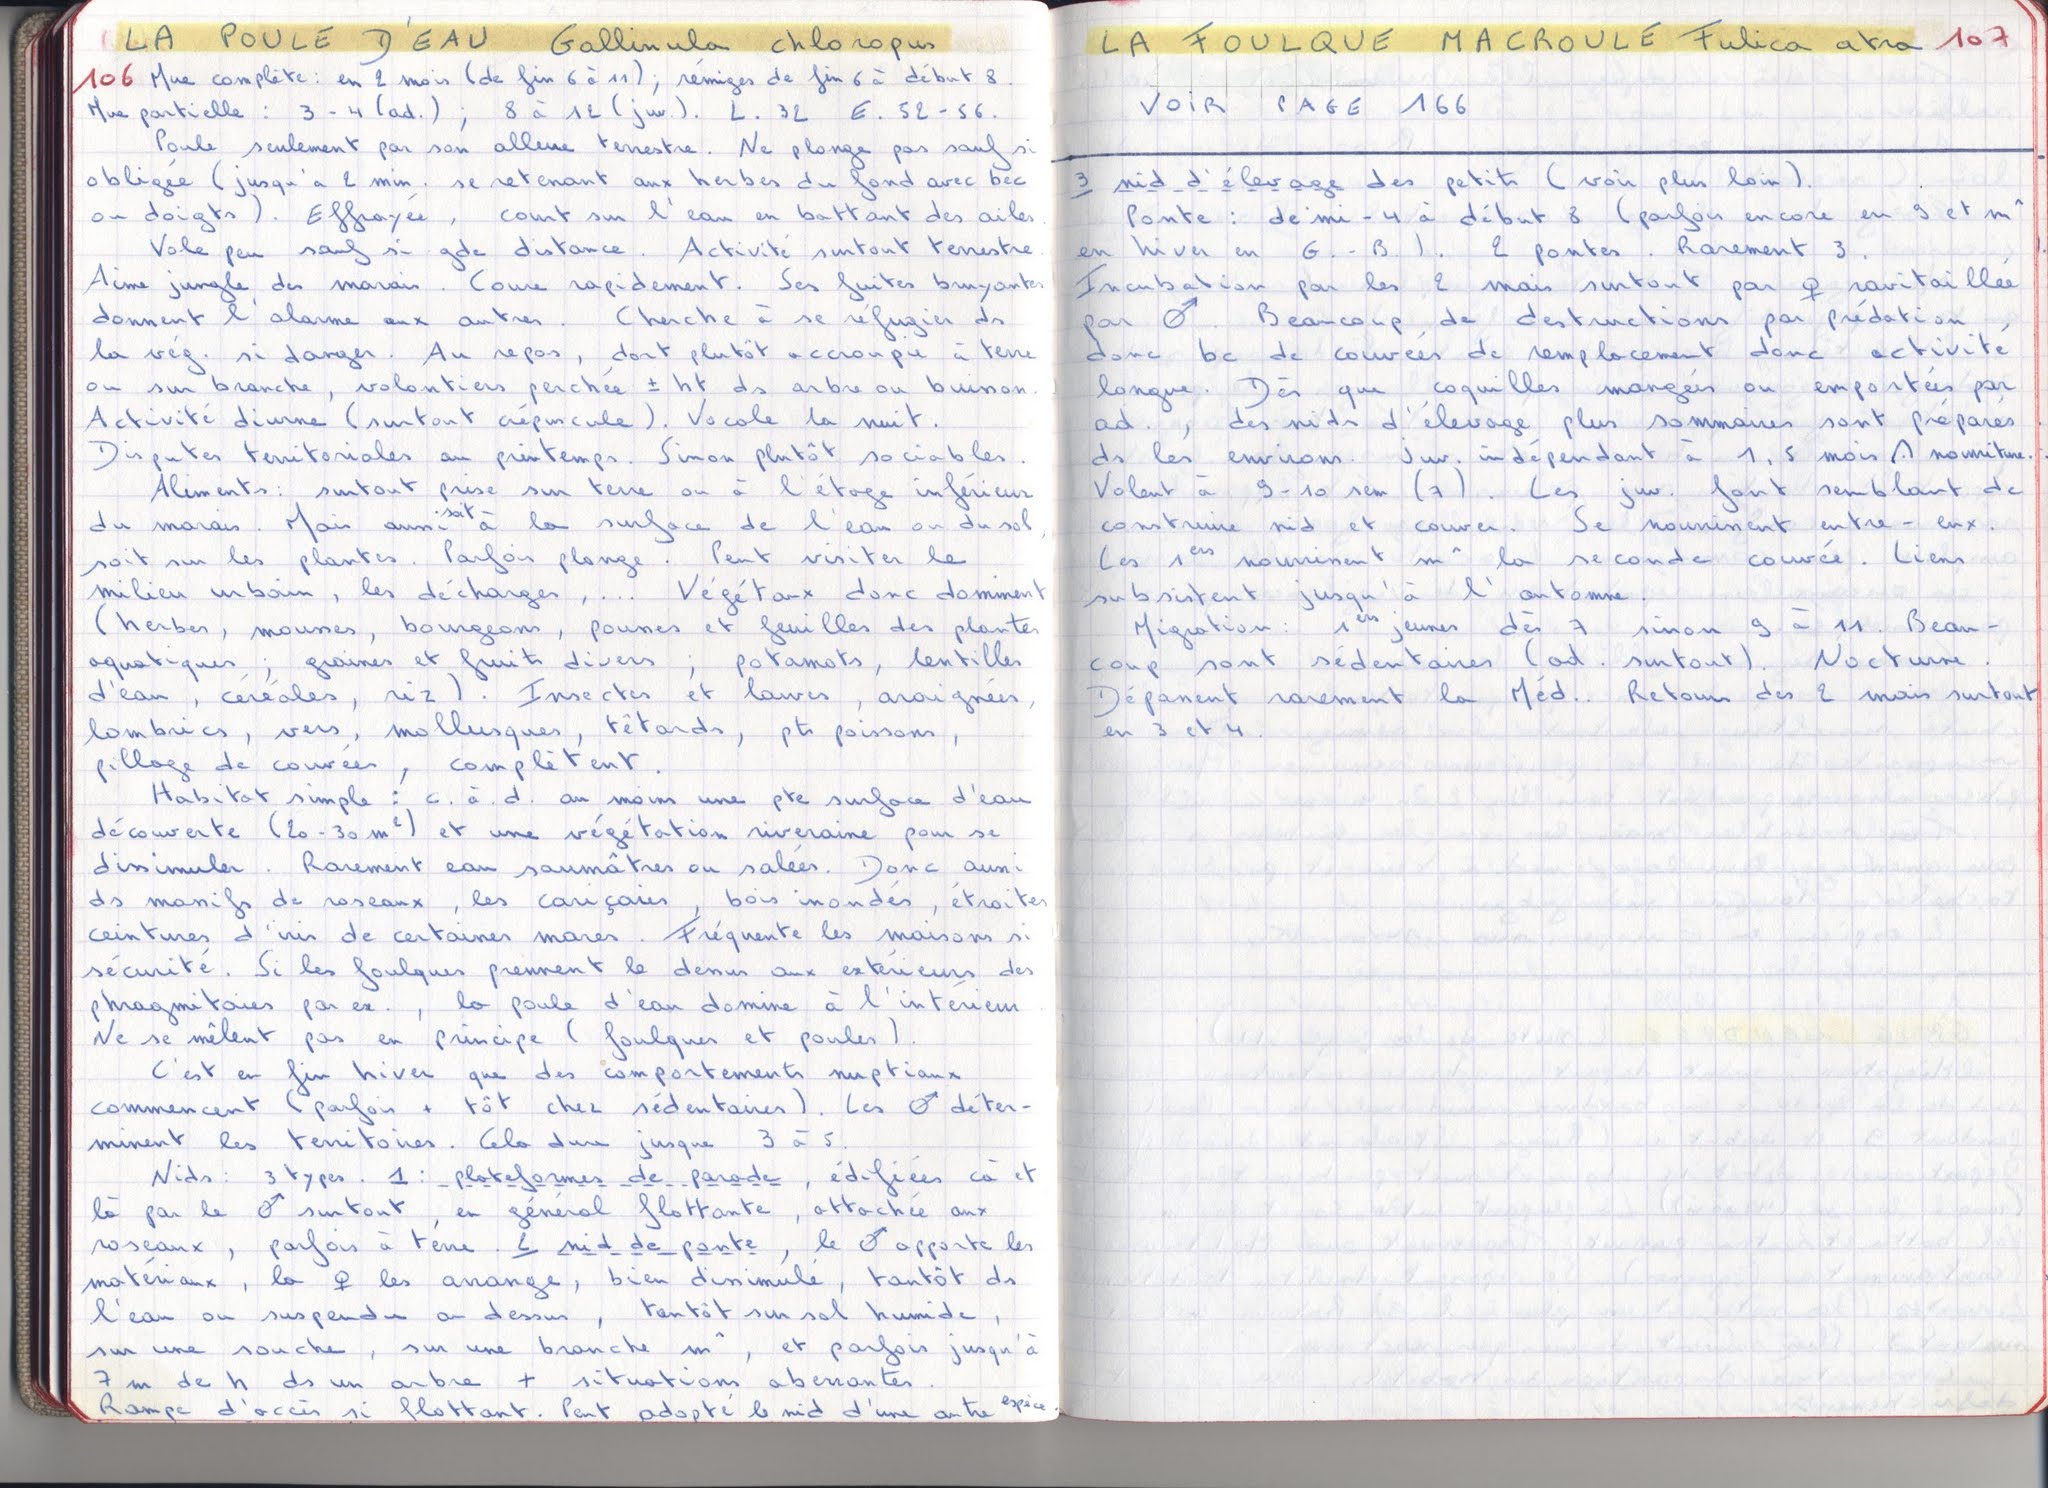 LA POULE D'EAU Gallinula chloropus
106 Mue complète : en 2 mois (de fin 6 à 11) ; rémiges de fin 6 à début 8.
Mue partielle : 3-4 (ad.) ; 8 à 12 (juv.). L. 32 E. 52-56.
Poule seulement par son allure terrestre. Ne plonge pas sauf si
obligée (jusqu'à 2 min. se retenant aux herbes du fond avec bec
ou doigts). Effrayée, court sur l'eau en battant des ailes.
Vole peu sauf si gde distance. Activité surtout terrestre.
Aime jungle des marais. Coure rapidement. Ses fuites bruyantes
donnent l'alarme aux autres. Cherche à se réfugier ds
la vég. si danger. Au repos, dort plutôt accroupie à terre
ou sur branche, volontiers perchée ± ht ds arbre ou buisson.
Activité diurne (surtout crépuscule). Vocale la nuit.
Disputes territoriales au printemps. Sinon plutôt sociables.
Aliments : surtout prise sur terre ou à l'étage inférieur
du marais. Mais aussi soit à la surface de l'eau ou du sol,
soit sur les plantes. Parfois plonge. Peut visiter le
milieu urbain, les décharges, ... Végétaux donc dominent
(herbes, mousses, bourgeons, pousses et feuilles des plantes
aquatiques ; graines et fruits divers ; potamots, lentilles
d'eau, céréales, riz). Insectes et larves, araignées,
lombrics, vers, mollusques, têtards, pts poissons,
pillage de couvées, complètent.
Habitat simple : c. à. d. au moins une pte surface d'eau
découverte (20-30 m²) et une végétation riveraine pour se
dissimuler. Rarement eau saumâtres ou salées. Donc aussi
ds massifs de roseaux, les cariçaies, bois inondés, étroites
ceintures d'iris de certaines mares. Fréquente les maisons si
sécurité. Si les foulques prennent le dessus aux extérieurs des
phragmitaies par ex., la poule d'eau domine à l'intérieur.
Ne se mêlent pas en principe (foulques et poules).
C'est en fin hiver que des comportements nuptiaux
commencent (parfois + tôt chez sédentaires). Les ♂ déter-
minent les territoires. Cela dure jusque 3 à 5.
Nids : 3 types. 1 : plateformes de parade, édifiées cà et
là par le ♂ surtout, en général flottante, attachée aux
roseaux, parfois à terre. 2 nid de ponte, le ♂ apporte les
matériaux, la ♀ les arrange, bien dissimulé, tantôt ds
l'eau ou suspendu au dessus, tantôt sur sol humide,
sur une souche, sur une branche m^, et parfois jusqu'à
7 m de h ds un arbre + situations aberrantes.
Rampe d'accès si flottant. Peut adopté le nid d'une autre espèce.
LA FOULQUE MACROULE Fulica atra 107
VOIR PAGE 166
3 nid d'élevage des petits (voir plus loin).
Ponte : de mi-4 à début 8 (parfois encore en 9 et m^
en hiver en G.-B.). 2 pontes. Rarement 3.
Incubation par les 2 mais surtout par ♀ ravitaillée
par ♂. Beaucoup de destructions par prédation,
donc bc de couvées de remplacement donc activité
longue. Dès que coquilles mangées ou emportées par
ad., des nids d'élevage plus sommaires sont préparés
ds les environs. Juv. indépendant à 1,5 mois nourriture.
Volent à 9-10 sem (7). Les juv. font semblant de
construire nid et couver. Se nourrissent entre-eux.
Les 1ers nourrissent m^ la seconde couvée. Liens
subsistent jusqu'à l'automne.
Migration : 1ers jeunes dès 7 sinon 9 à 11. Beau-
coup sont sédentaires (ad. surtout). Nocturne.
Dépassent rarement la Méd.. Retour dès 2 mais surtout
en 3 et 4.